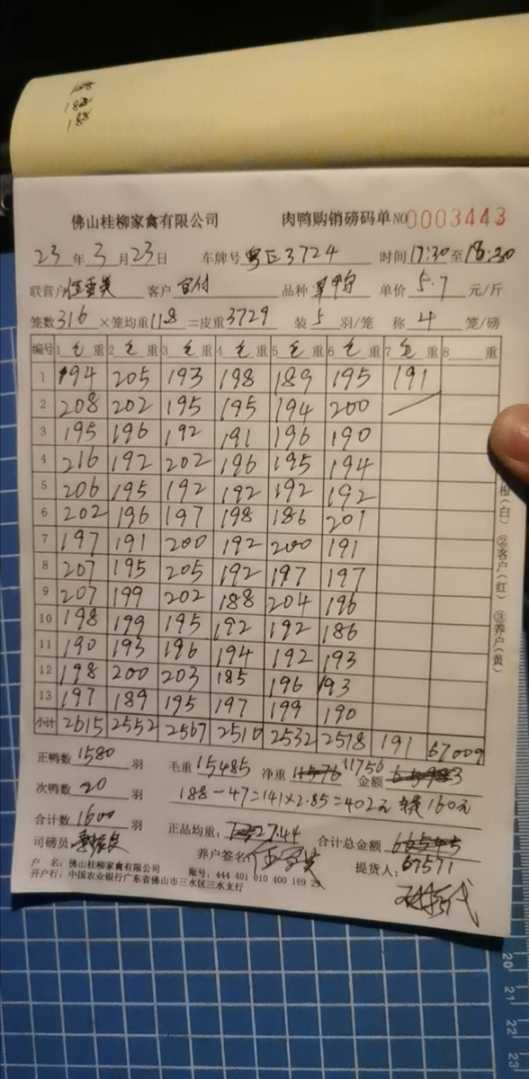 佛山桂柳家禽有限公司 肉鸭购销磅码单 NO 0003443
23 年 3 月 23 日 车牌号 粤E3724 时间 17:30 至 18:30
联营户 客户 品种 单价 5.7 元/斤
笼数 316 ×笼均重 11.8 =皮重 3729 装 5 羽/笼 称 4 笼/磅
编号 1 毛 重 2 毛 重 3 毛 重 4 毛 重 5 毛 重 6 毛 重 7 毛 重 8 重
1 194 205 193 198 189 195 191
2 208 202 195 195 194 200
3 195 196 192 191 196 190
4 216 192 202 196 195 194
5 206 195 192 192 192 192
6 202 196 197 198 186 201
7 197 191 200 192 200 191
8 207 195 205 192 197 197
9 207 199 202 188 204 196
10 198 199 195 192 192 186
11 190 193 196 194 192 193
12 198 200 203 185 196 193
13 197 189 195 197 199 190
小计 2615 2552 2567 2510 2532 2518 191 67009
(白) ②客户(红) ③养户(黄)
正鸭数 1580 羽 毛重 15485 净重 11756 金额
次鸭数 20 羽 188-47=141×2.85=402元 160元
合计数 1600 羽 正品均重: 7.44 合计总金额 67571
司磅员 养户签名: 提货人:
户 名: 佛山桂柳家禽有限公司 账号: 444 401 010 400 169 29
开户行: 中国农业银行广东省佛山市三水区三水支行
20
21
22
23